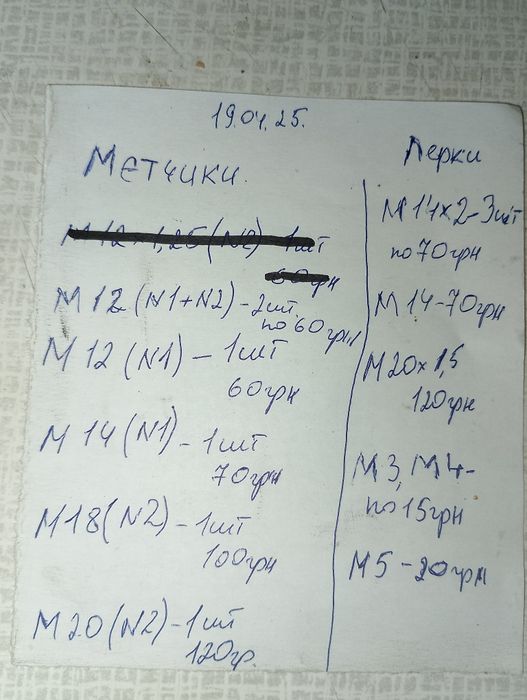 19.04.25.
Метчики.
М 12 × 1,25 (N2) - 1шт
60грн
М 12 (N1+N2) - 2шт.
по 60грн
М 12 (N1) - 1шт
60грн
М 14 (N1) - 1шт
70грн
М18 (N2) - 1шт
100грн
М 20 (N2) - 1шт
120гр.
Лерки
М 14×2 - 3шт
по 70грн
М 14 - 70грн
М20×1,5
120грн
М3, М4 -
по 15грн
М5 - 20грн